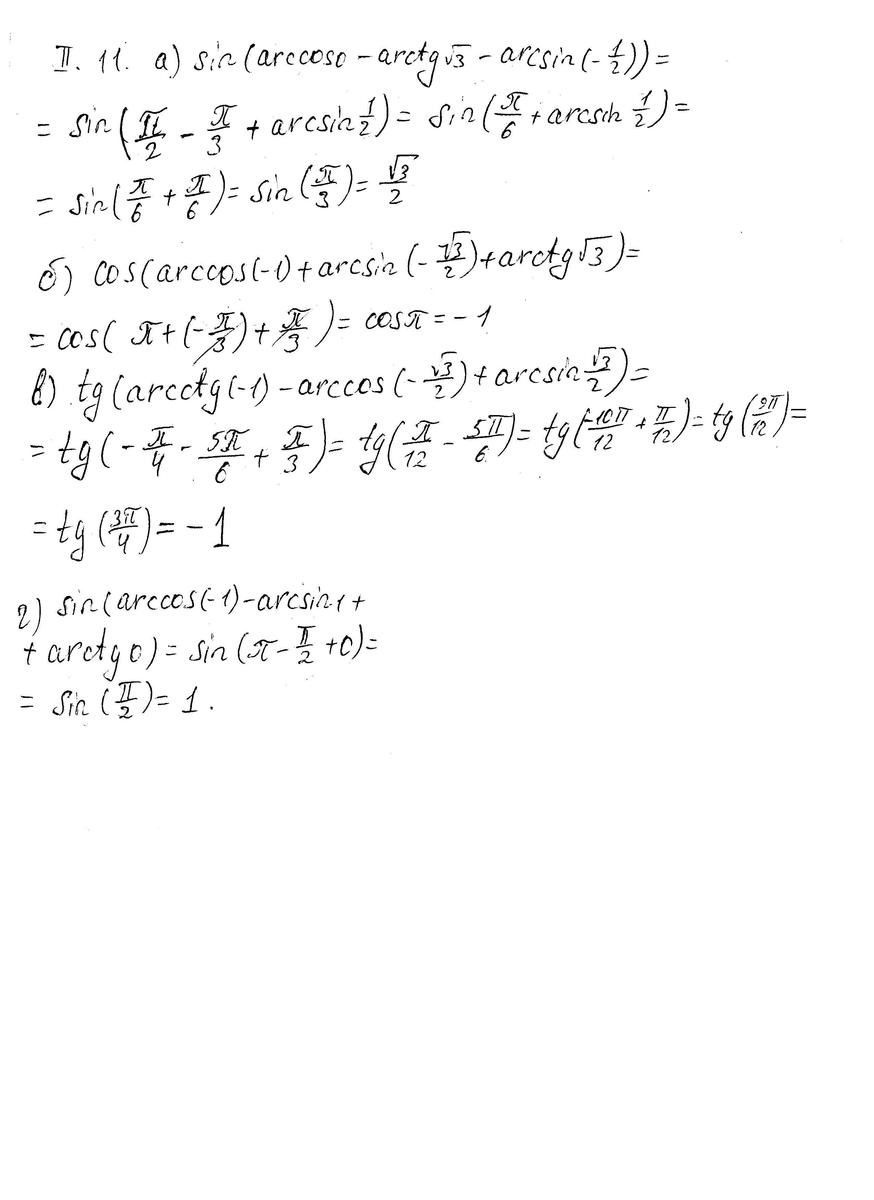 II. 11. а) sin(arccos0 - arctg√3 - arcsin(-1/2)) =
= sin(π/2 - π/3 + arcsin 1/2) = sin(π/6 + arcsin 1/2) =
= sin(π/6 + π/6) = sin(π/3) = √3/2
б) cos(arccos(-1) + arcsin(-√3/2) + arctg√3) =
= cos(π + (-π/3) + π/3) = cosπ = -1
в) tg(arcctg(-1) - arccos(-√3/2) + arcsin √3/2) =
= tg(-π/4 - 5π/6 + π/3) = tg(π/12 - 5π/6) = tg(-10π/12 + π/12) = tg(9π/12) =
= tg(3π/4) = -1
г) sin(arccos(-1) - arcsin1 +
+ arctg0) = sin(π - π/2 + 0) =
= sin(π/2) = 1.